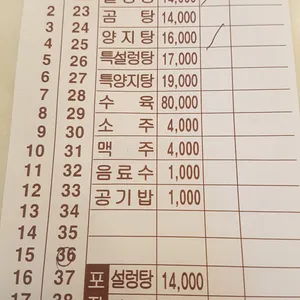 2 23 설렁탕 14,000
3 24 곰 탕 14,000
4 25 양지탕 16,000
5 26 특설렁탕 17,000
6 27 특양지탕 19,000
7 28 수 육 80,000
8 29 소 주 4,000
9 30 맥 주 4,000
10 31 음료수 1,000
11 32 공기밥 1,000
12 33
13 34
14 35
15 36
16 37 포 설렁탕 14,000
17 38